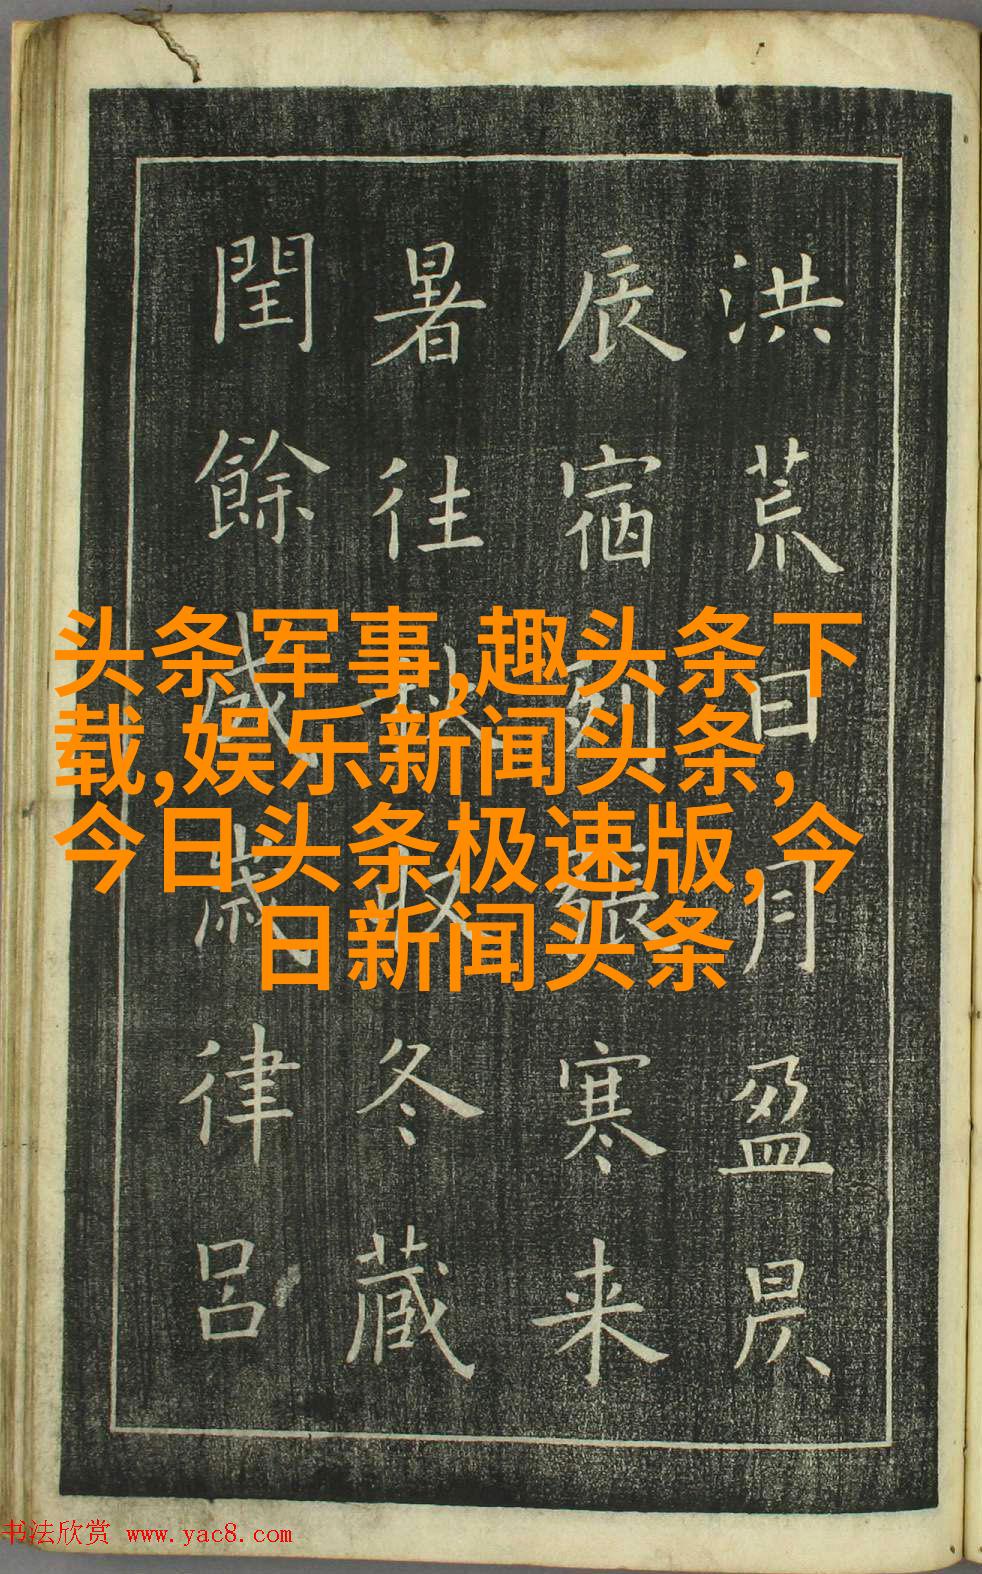 洪荒日月盈昃
辰宿列張寒来
暑往秋收冬藏
閏餘成歲律呂
头条军事,趣头条下
载,娱乐新闻头条,
今日头条极速版,今
日新闻头条
书法欣赏 www.yac8.com